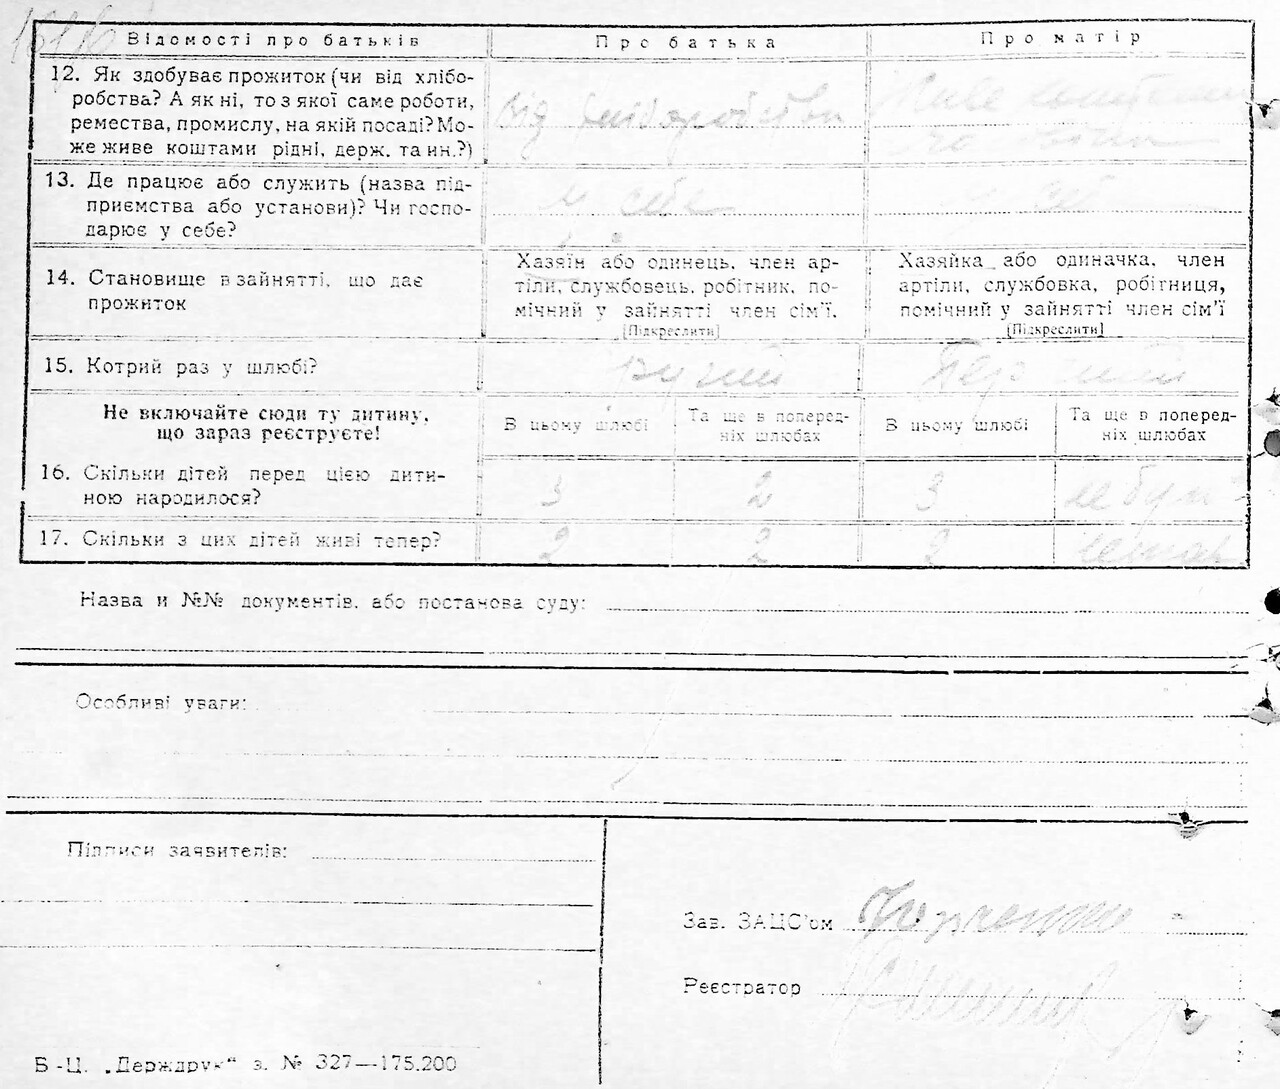 Відомості про батьків
Про батька
Про матір
12. Як здобуває прожиток (чи від хлібо-
робства? А як ні, то з якої саме роботи,
ремества, промислу, на якій посаді? Мо-
же живе коштами рідні, держ. та ин.?)
Від хліборобства
Живе коштами
13. Де працює або служить (назва під-
приємства або установи)? Чи госпо-
дарює у себе?
У себе
у себе
14. Становище в зайнятті, що дає
прожиток
Хазяїн або одинець, член ар-
тіли, службовець, робітник, по-
мічний у зайнятті член сім'ї.
[Підкреслити]
Хазяйка або одиначка, член
артіли, службовка, робітниця,
помічний у зайнятті член сім'ї
[Підкреслити]
15. Котрий раз у шлюбі?
Другий
Перший
Не включайте сюди ту дитину,
що зараз реєструєте!
В цьому шлюбі
Та ще в поперед-
ніх шлюбах
В цьому шлюбі
Та ще в поперед-
ніх шлюбах
16. Скільки дітей перед цією дити-
ною народилося?
3
2
3
не було
17. Скільки з цих дітей живі тепер?
2
2
2
Назва и №№ документів, або постанова суду:
Особливі уваги:
Підписи заявителів:
Зав. ЗАЦС'ом
Реєстратор
Б-Ц. „Держдрук" з. № 327—175.200